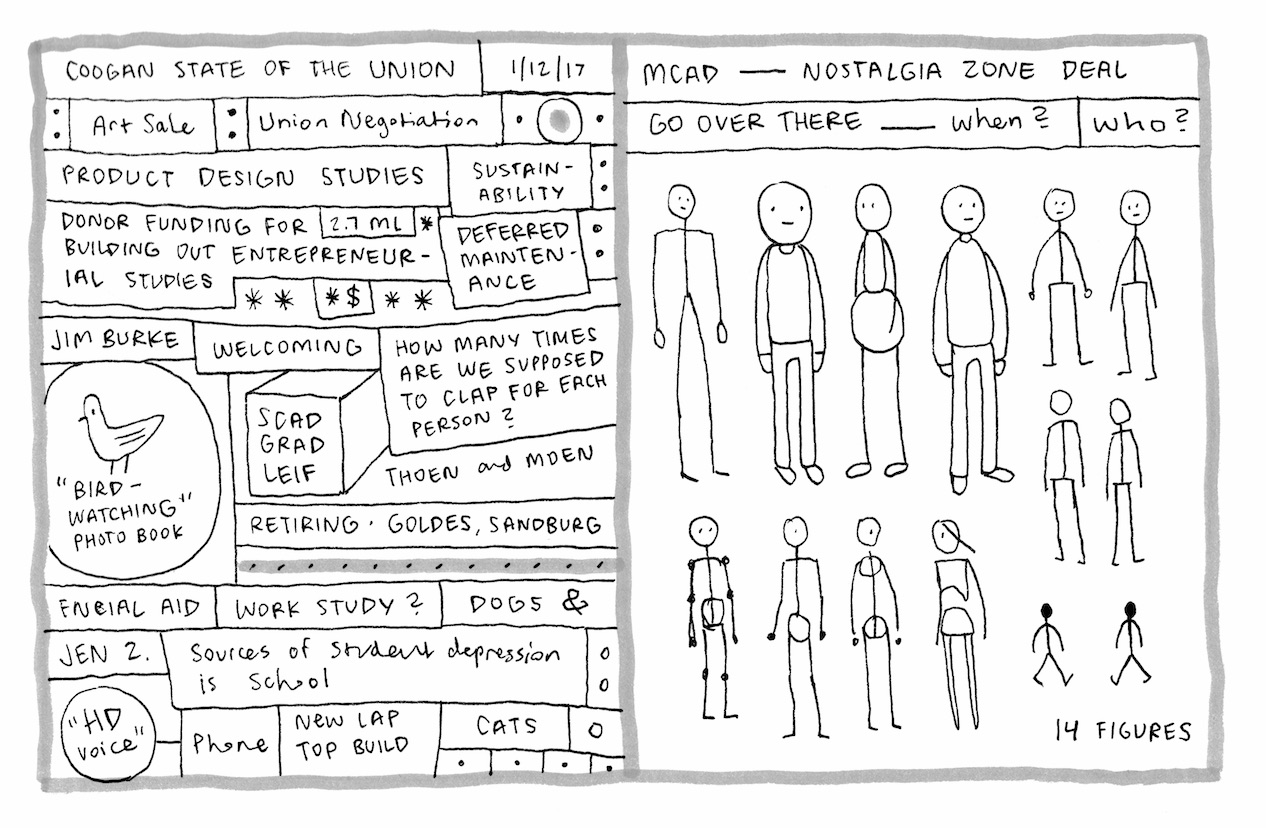 COOGAN STATE OF THE UNION
1/12/17
Art Sale
Union Negotiation
PRODUCT DESIGN STUDIES
SUSTAIN-
ABILITY
DONOR FUNDING FOR 2.7 ML *
BUILDING OUT ENTREPRENEUR-
IAL STUDIES
* * *$ * *
DEFERRED
MAINTEN-
ANCE
JIM BURKE
WELCOMING
HOW MANY TIMES
ARE WE SUPPOSED
TO CLAP FOR EACH
PERSON?
SCAD
GRAD
LEIF
THOEN and MOEN
"BIRD-
WATCHING"
PHOTO BOOK
RETIRING · GOLDES, SANDBURG
FNCIAL AID
WORK STUDY?
DOGS &
JEN 2.
Sources of Student depression
is School
"HD
voice"
Phone
NEW LAP
TOP BUILD
CATS
MCAD — NOSTALGIA ZONE DEAL
GO OVER THERE — when?
who?
14 FIGURES